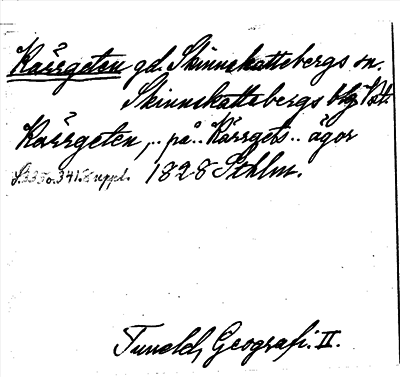 Kärrgeten gd. Skinnskattebergs sn.
Skinnskattebergs blg Vstl.
Kärrgeten, .. på .. Kärrgets .. ägor
S. 335 o. 341. 8 uppl. 1828 Sthlm.
Tuneld, Geografi. II.